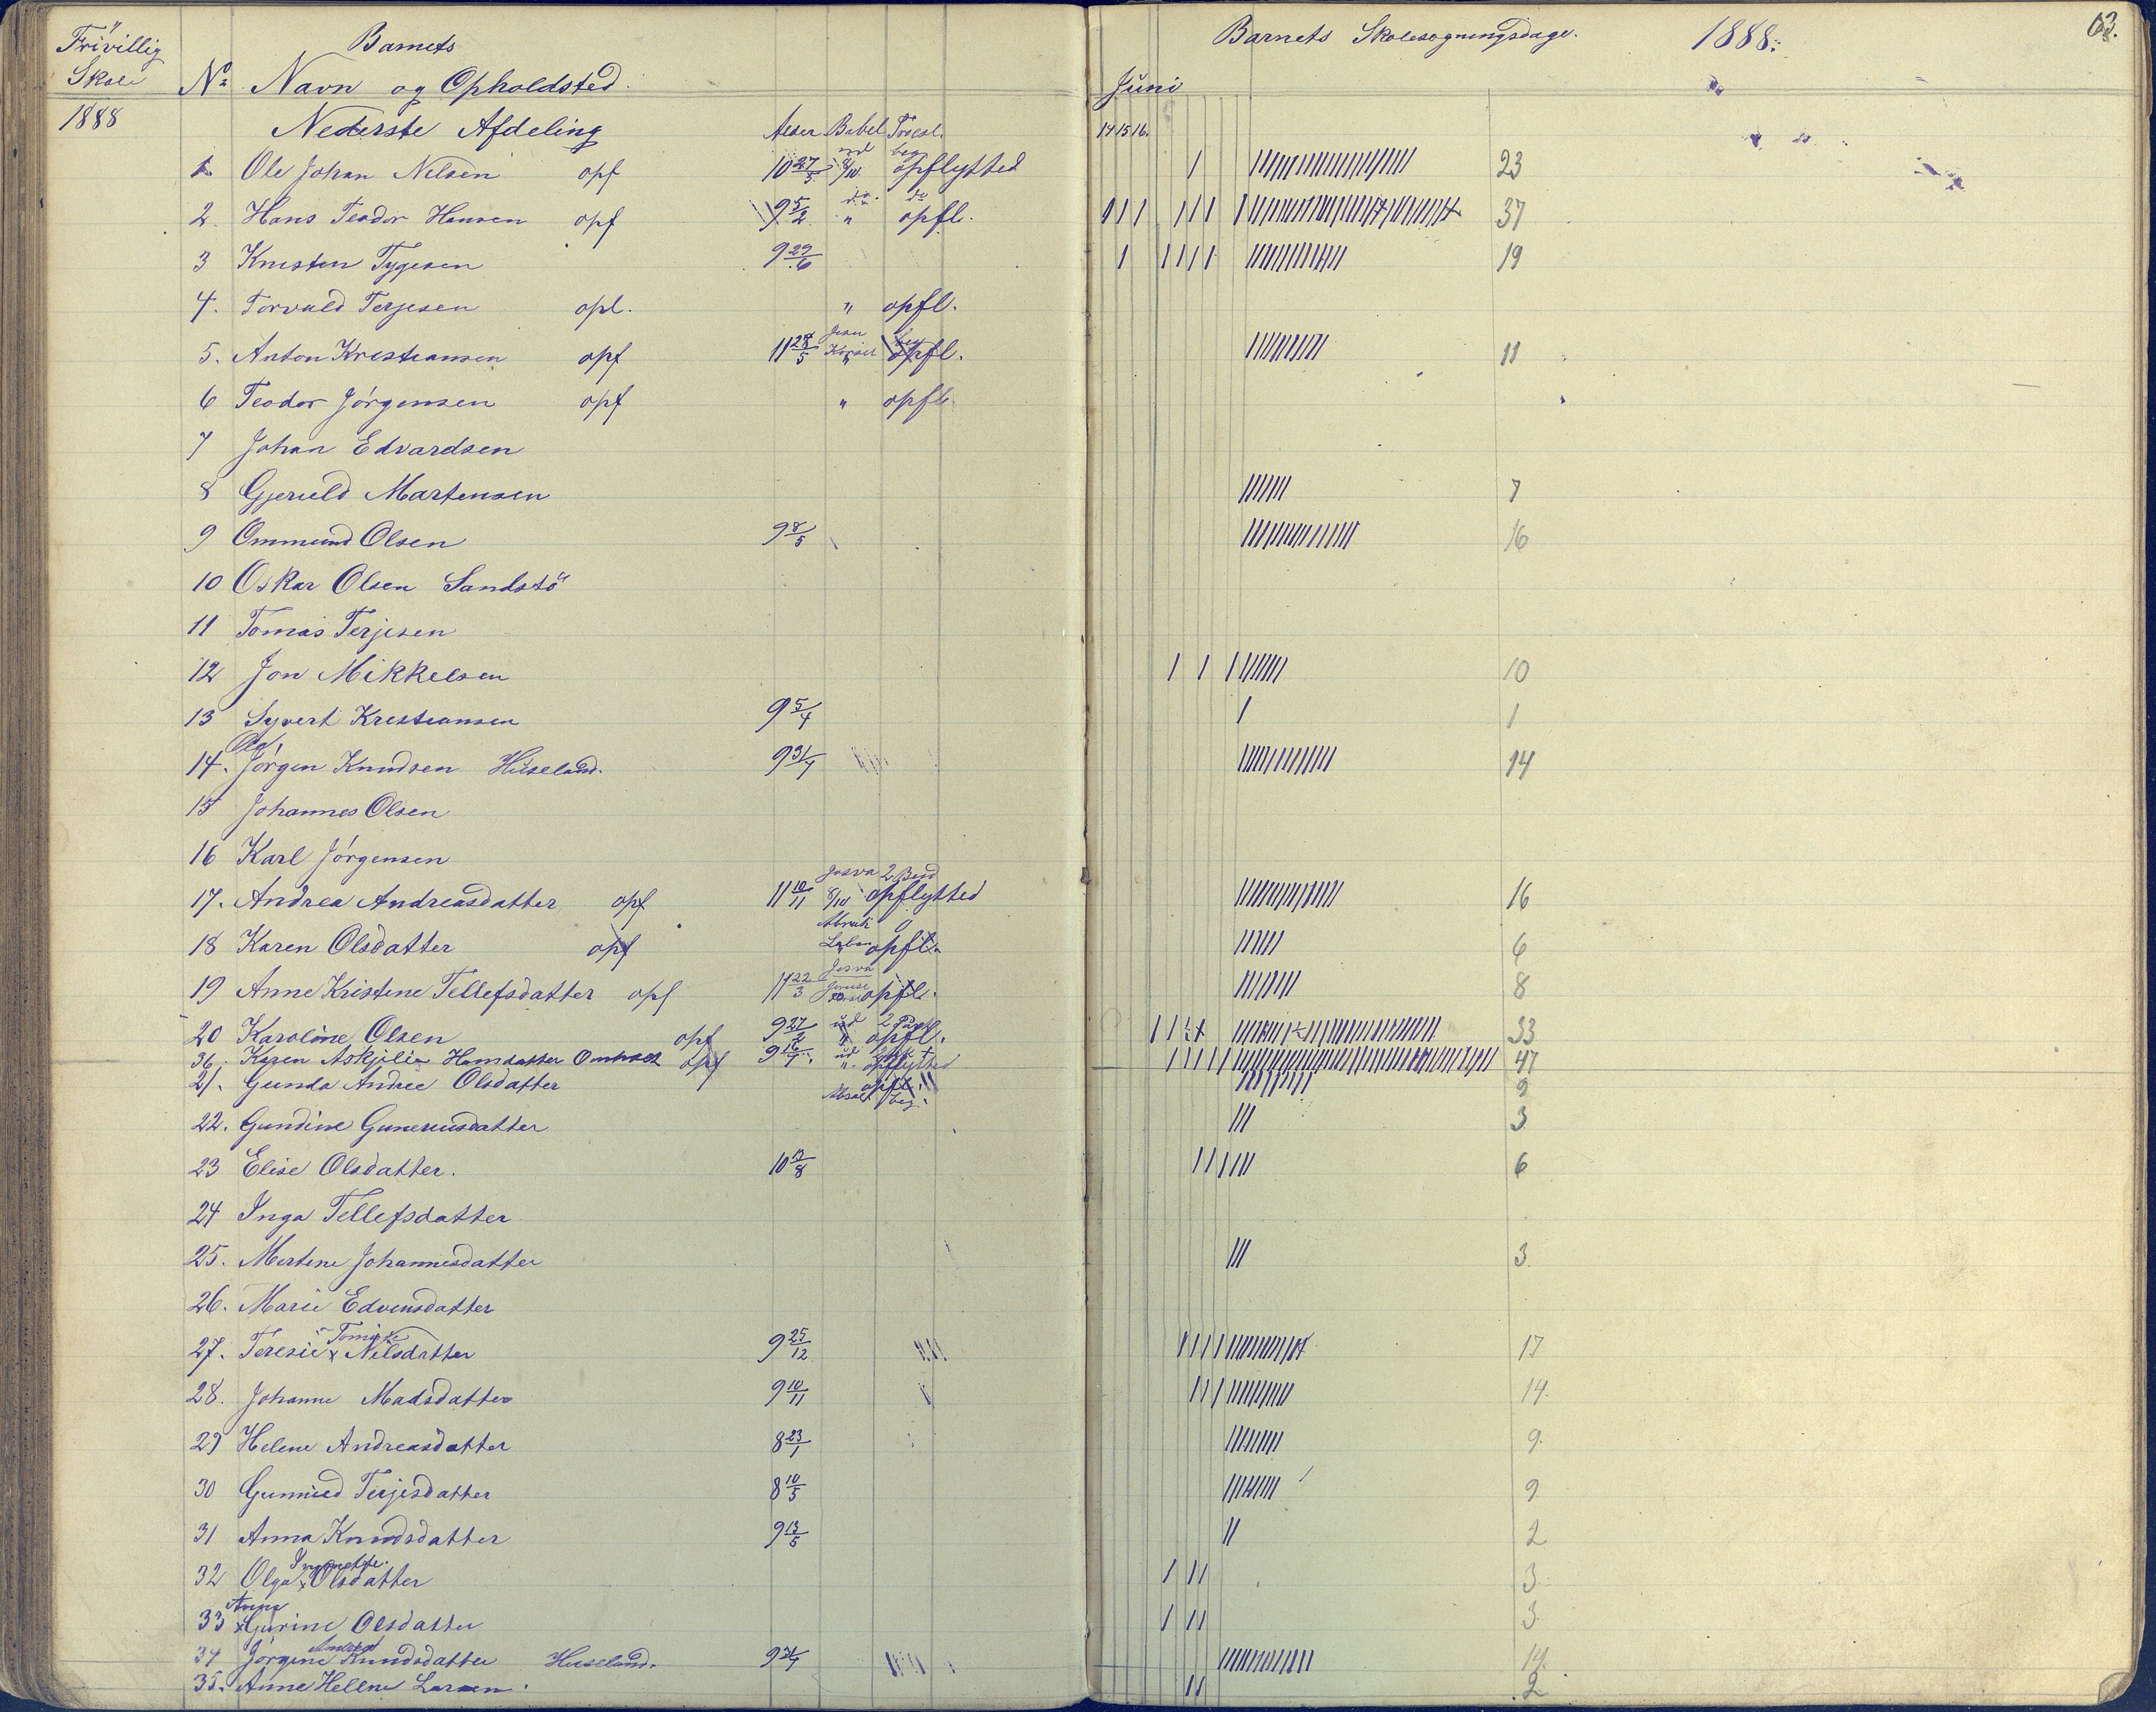 Frivillig Barnets Barnets Skolesøgningsdage. 1888. 63.
Skole No. Navn og Opholdsted. Juni
1888 Nederste Afdeling Bibel 14 15 16.
1 Ole Johan Nilsen opf 10 27/5 8/10 opflytted 23
2. Hans Teodor Hansen opf 9 5/2 " opfl. 37
3 Kristen Tygesen 9 29/6 19
4. Torvald Terjesen opl. " opfl.
5. Anton Kristiansen opf 11 28/5 " opfl. 11
6 Teodor Jörgensen opf " opfl.
7 Johan Edvardsen
8 Gjeruld Martensen 7
9 Ommund Olsen 9 8/5 16
10 Oskar Olsen Sandstö
11 Tomas Terjesen
12 Jon Mikkelsen 10
13 Syvert Kristiansen 9 5/4 1
14. Jörgen Knudsen Huseland. 14
15 Johannes Olsen
16 Karl Jörgensen
17. Andrea Andreasdatter opf 11 10/11 8/10 opflytted 16
18 Karen Olsdatter opf opfl. 6
19 Anne Kristine Tellefsdatter opf 11 22/3 opfl. 8
20 Karoline Olsen opf 9 27/2 opfl. 33
36. Karen Askjelia opf opflytted 47
21. Gunda Andree Olsdatter opfl. 9
22. Gundine Guneriusdatter 3
23 Elise Olsdatter. 6
24 Inga Tellefsdatter
25. Mertine Johannesdatter 3
26. Marie Edvinsdatter
27. Teresie Nilsdatter 9 25/12 17
28. Johanne Madsdatter 9 10/11 14.
29 Helene Andreasdatter 8 23/1 9.
30 Gunnild Terjesdatter 8 10/5 9
31 Anna Knudsdatter 9 13/5 2
32 Olga Olsdatter 3
33 Gurine Olsdatter 3
34 Jörgine Knudsdatter Huseland. 14.
35. Anne Helene Larsen. 2